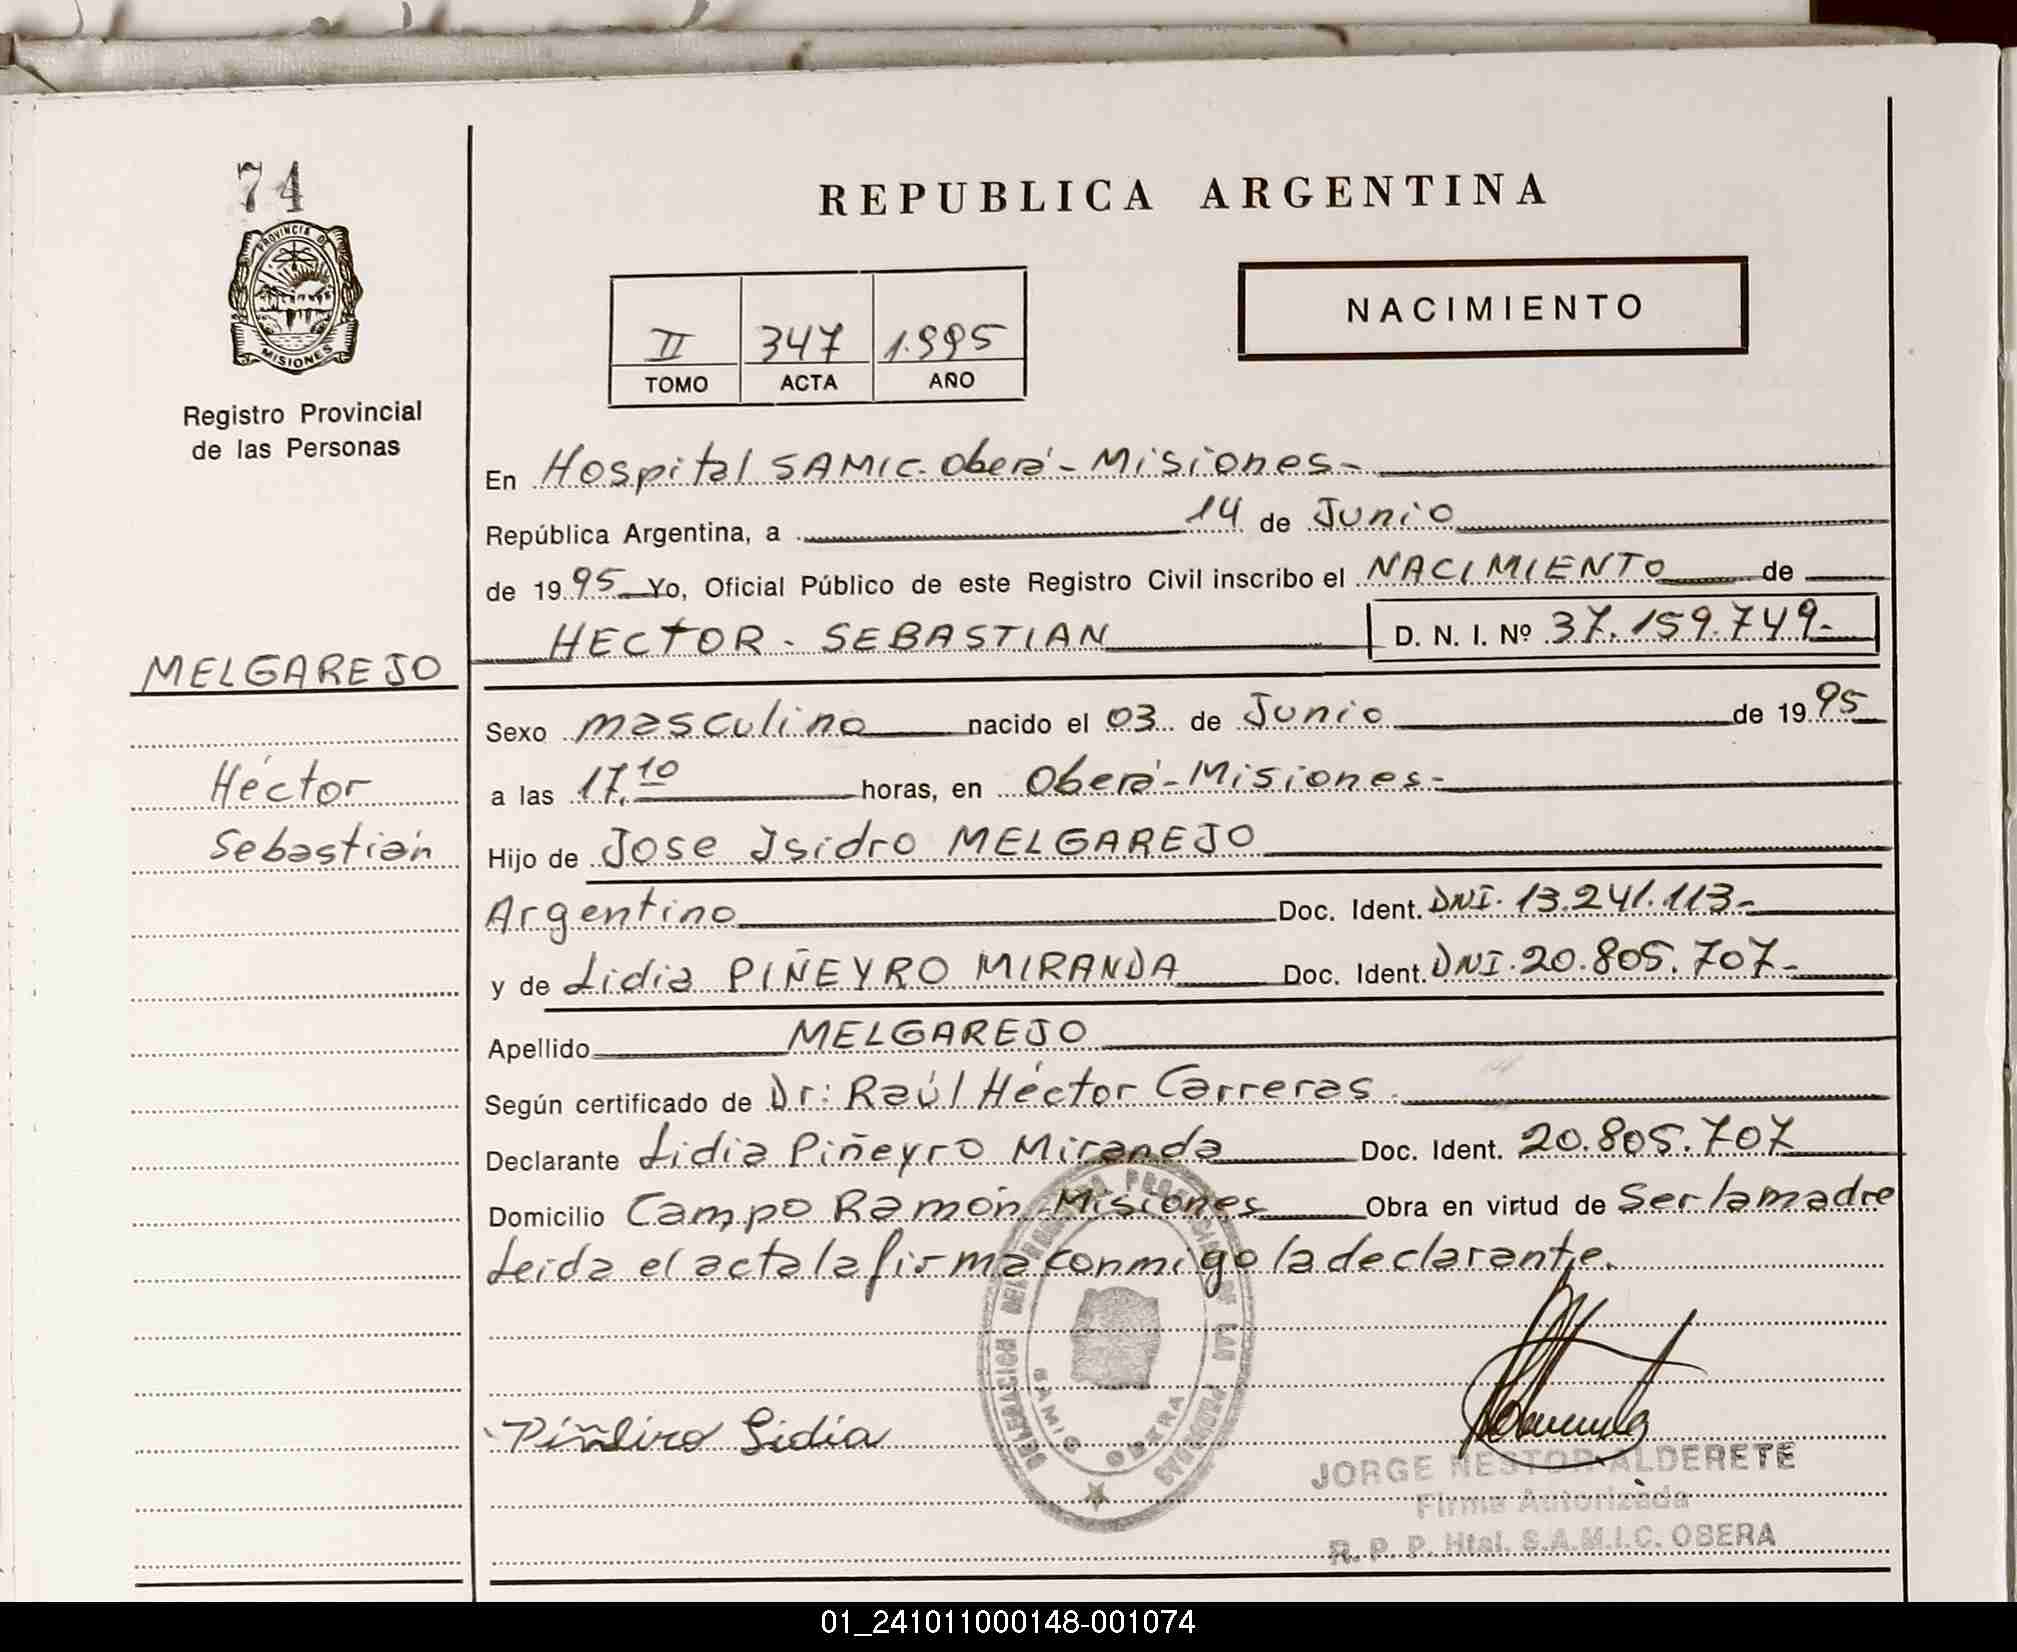 74
PROVINCIA D
MISIONES
Registro Provincial
de las Personas
REPUBLICA ARGENTINA
II 347 1.995
TOMO ACTA AÑO
NACIMIENTO
En Hospital SAMIC. Oberá - Misiones -
República Argentina, a 14 de Junio
de 1995 Yo, Oficial Público de este Registro Civil inscribo el NACIMIENTO de
HECTOR - SEBASTIAN D. N. I. Nº 37.159.749.-
MELGAREJO
Héctor
Sebastián
Sexo masculino nacido el 03 de Junio de 1995
a las 17,10 horas, en Oberá - Misiones -
Hijo de Jose Isidro MELGAREJO
Argentino Doc. Ident. DNI. 13.241.113-
y de Lidia PIÑEYRO MIRANDA Doc. Ident. DNI. 20.805.707-
Apellido MELGAREJO
Según certificado de Dr: Raúl Héctor Carreras.
Declarante Lidia Piñeyro Miranda Doc. Ident. 20.805.707
Domicilio Campo Ramón Misiones Obra en virtud de Ser la madre
Leida el acta la firma conmigo la declarante.
Piñeiro Lidia
SAMIC OBERA
JORGE NESTOR ALDERETE
Firma Autorizada
R. P. P. Htal. S.A.M.I.C. OBERA
01_241011000148-001074